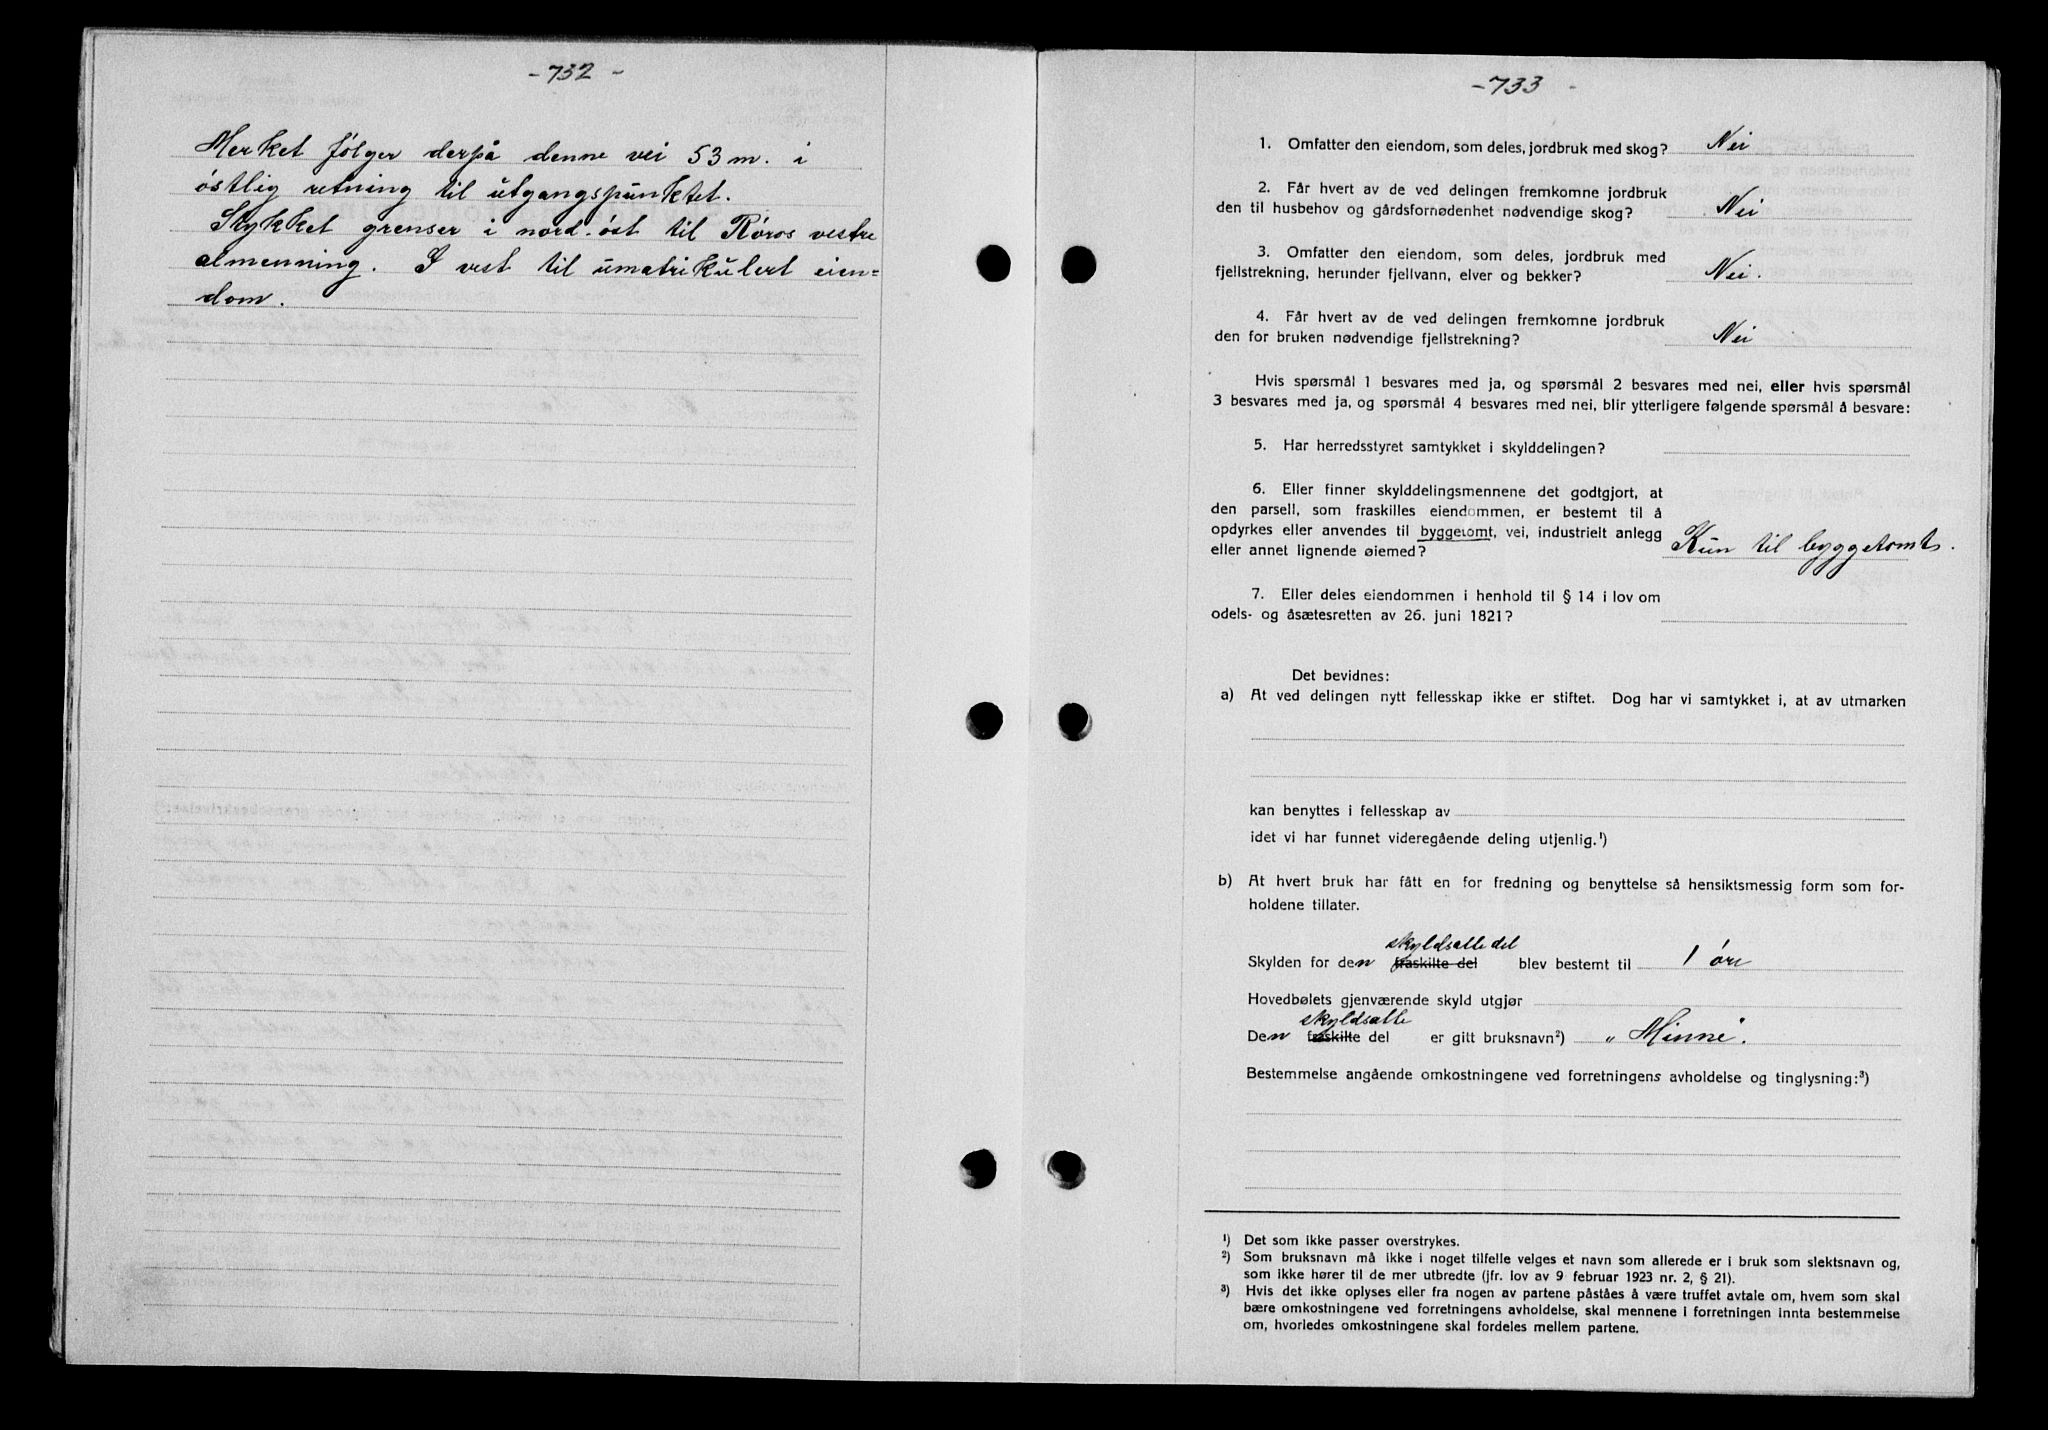 - 732 -
Merket følger derpå denne vei 53 m. i
østlig retning til utgangspunktet.
Stykket grenser i nord-øst til Røros vestre
almenning. I vest til umatrikulert eien=
dom.
- 733 -
1. Omfatter den eiendom, som deles, jordbruk med skog? Nei
2. Får hvert av de ved delingen fremkomne jordbruk
den til husbehov og gårdsfornødenhet nødvendige skog? Nei
3. Omfatter den eiendom, som deles, jordbruk med
fjellstrekning, herunder fjellvann, elver og bekker? Nei.
4. Får hvert av de ved delingen fremkomne jordbruk
den for bruken nødvendige fjellstrekning? Nei
Hvis spørsmål 1 besvares med ja, og spørsmål 2 besvares med nei, eller hvis spørsmål
3 besvares med ja, og spørsmål 4 besvares med nei, blir ytterligere følgende spørsmål å besvare:
5. Har herredsstyret samtykket i skylddelingen?
6. Eller finner skylddelingsmennene det godtgjort, at
den parsell, som fraskilles eiendommen, er bestemt til å
opdyrkes eller anvendes til byggetomt, vei, industrielt anlegg
eller annet lignende øiemed? Kun til byggetomt.
7. Eller deles eiendommen i henhold til § 14 i lov om
odels- og åsætesretten av 26. juni 1821?
Det bevidnes:
a) At ved delingen nytt fellesskap ikke er stiftet. Dog har vi samtykket i, at av utmarken
kan benyttes i fellesskap av
idet vi har funnet videregående deling utjenlig.¹)
b) At hvert bruk har fått en for fredning og benyttelse så hensiktsmessig form som for-
holdene tillater.
skyldsatte del
Skylden for den fraskilte del blev bestemt til 1 øre
Hovedbølets gjenværende skyld utgjør
skyldsatte
Den fraskilte del er gitt bruksnavn²) „Minne".
Bestemmelse angående omkostningene ved forretningens avholdelse og tinglysning:³)
¹) Det som ikke passer overstrykes.
²) Som bruksnavn må ikke i noget tilfelle velges et navn som allerede er i bruk som slektsnavn og,
som ikke hører til de mer utbredte (jfr. lov av 9 februar 1923 nr. 2, § 21).
³) Hvis det ikke oplyses eller fra nogen av partene påståes å være truffet avtale om, hvem som skal
bære omkostningene ved forretningens avholdelse, skal mennene i forretningen innta bestemmelse
om, hvorledes omkostningene skal fordeles mellem partene.